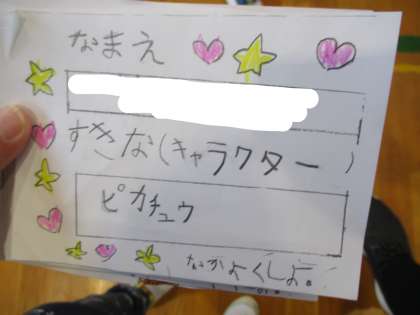 なまえ
すきな(キャラクター)
ピカチュウ
なかよくしよ。